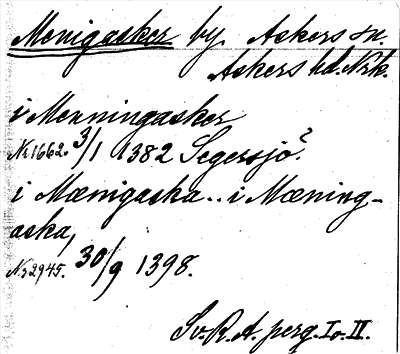 Menigasker by Askers sn.
Askers hd. Nrk.
i Menningasker
Nr 1662. 3/1 1382 Segersjö?.
i Mænigaska.. i Mæning-
aska,
Nr 2945. 30/9 1398.
Sv. R. A. perg. I o. II.